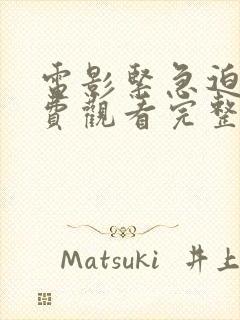 電影緊急迫
費觀看完整
Matsuki 井上